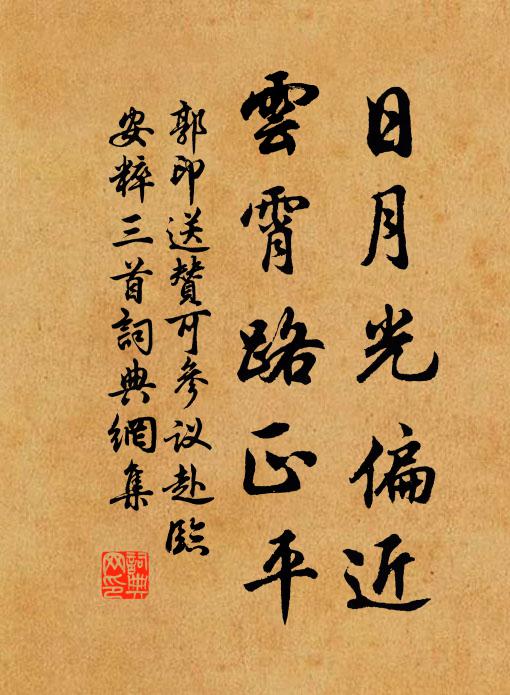 日月光偏近
雲霄路正平
郭印送贊可參议赴臨
安粹三首詞典網集
詞典網印